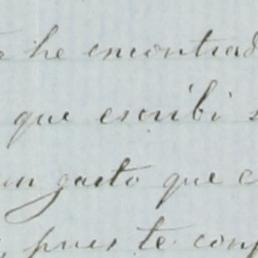 he encontrad
que escribí
un gasto que c
, pues te conf